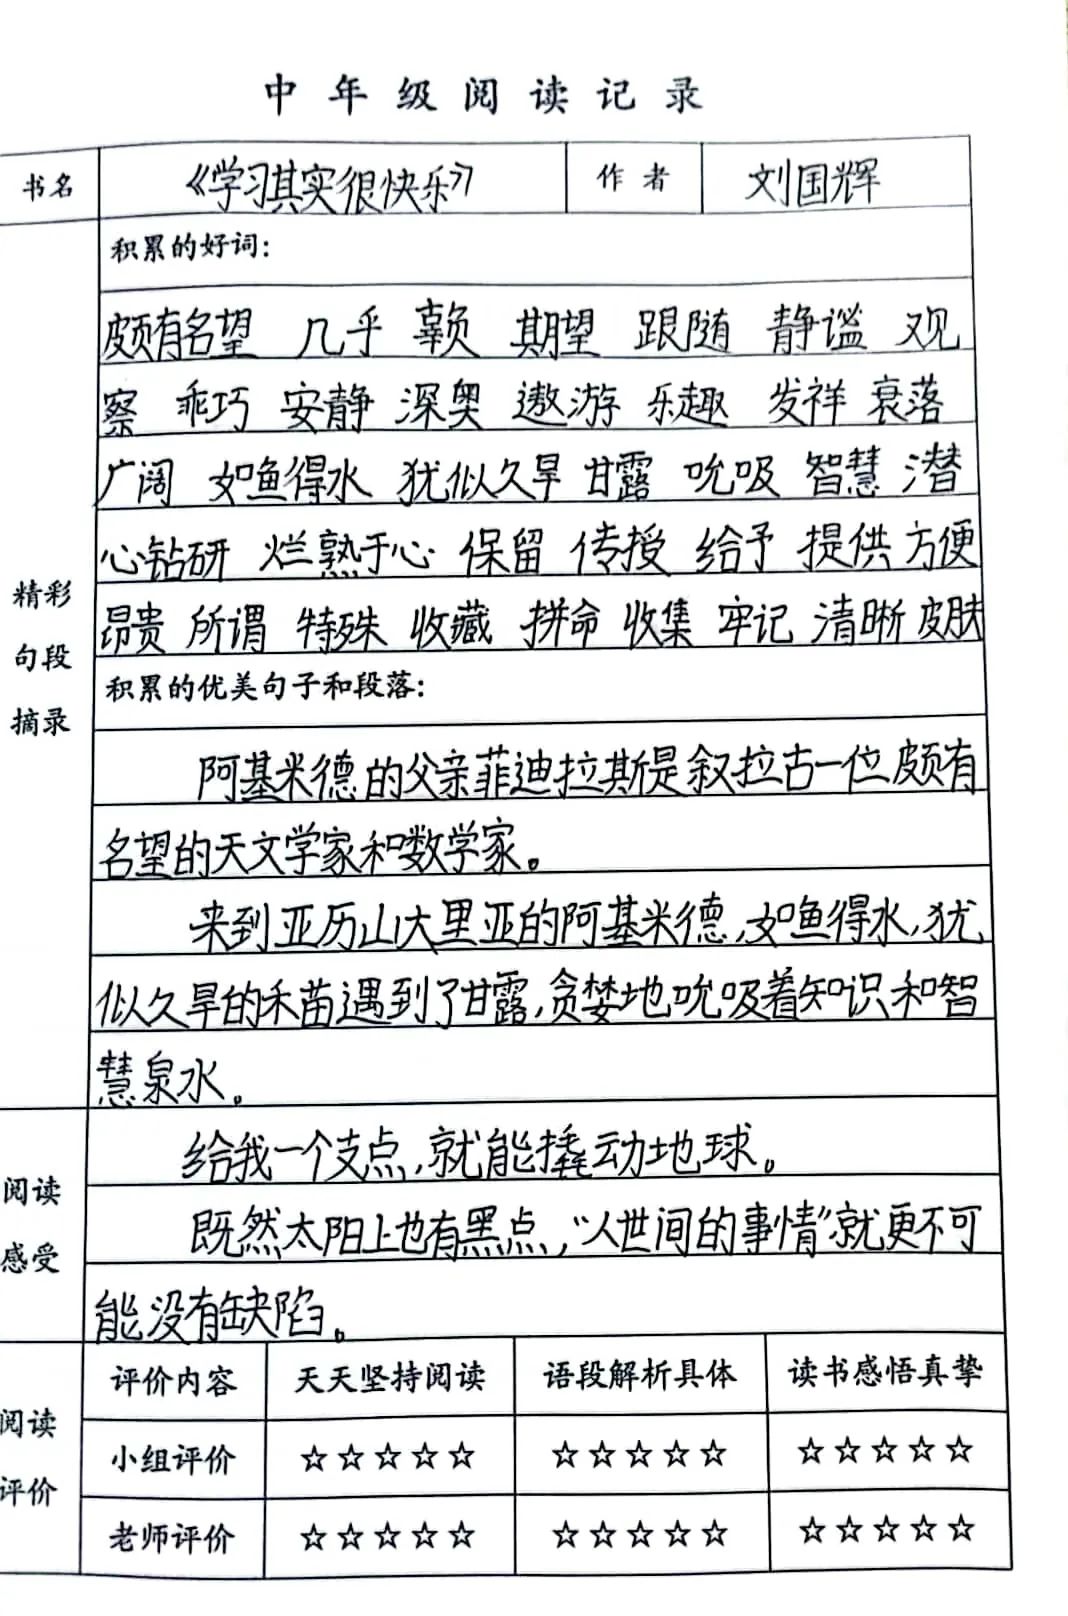 中年级阅读记录
书名 《学习其实很快乐》 作者 刘国辉
积累的好词：
颇有名望 几乎 辜负 期望 跟随 静谧 观
察 乖巧 安静 深奥 遨游 乐趣 发祥 衰落
广阔 如鱼得水 犹似久旱 甘露 吮吸 智慧 潜
心钻研 烂熟于心 保留 传授 给予 提供 方便
昂贵 所谓 特殊 收藏 拼命 收集 牢记 清晰 皮肤
精彩
句段
摘录
积累的优美句子和段落：
阿基米德的父亲菲迪拉斯是叙拉古一位颇有
名望的天文学家和数学家。
来到亚历山大里亚的阿基米德,如鱼得水,犹
似久旱的禾苗遇到了甘露,贪婪地吮吸着知识和智
慧泉水。
阅读
感受
给我一个支点,就能撬动地球。
既然太阳上也有黑点,“人世间的事情”就更不可
能没有缺陷。
阅读
评价
评价内容 天天坚持阅读 语段解析具体 读书感悟真挚
小组评价 ☆☆☆☆☆ ☆☆☆☆☆ ☆☆☆☆☆
老师评价 ☆☆☆☆☆ ☆☆☆☆☆ ☆☆☆☆☆